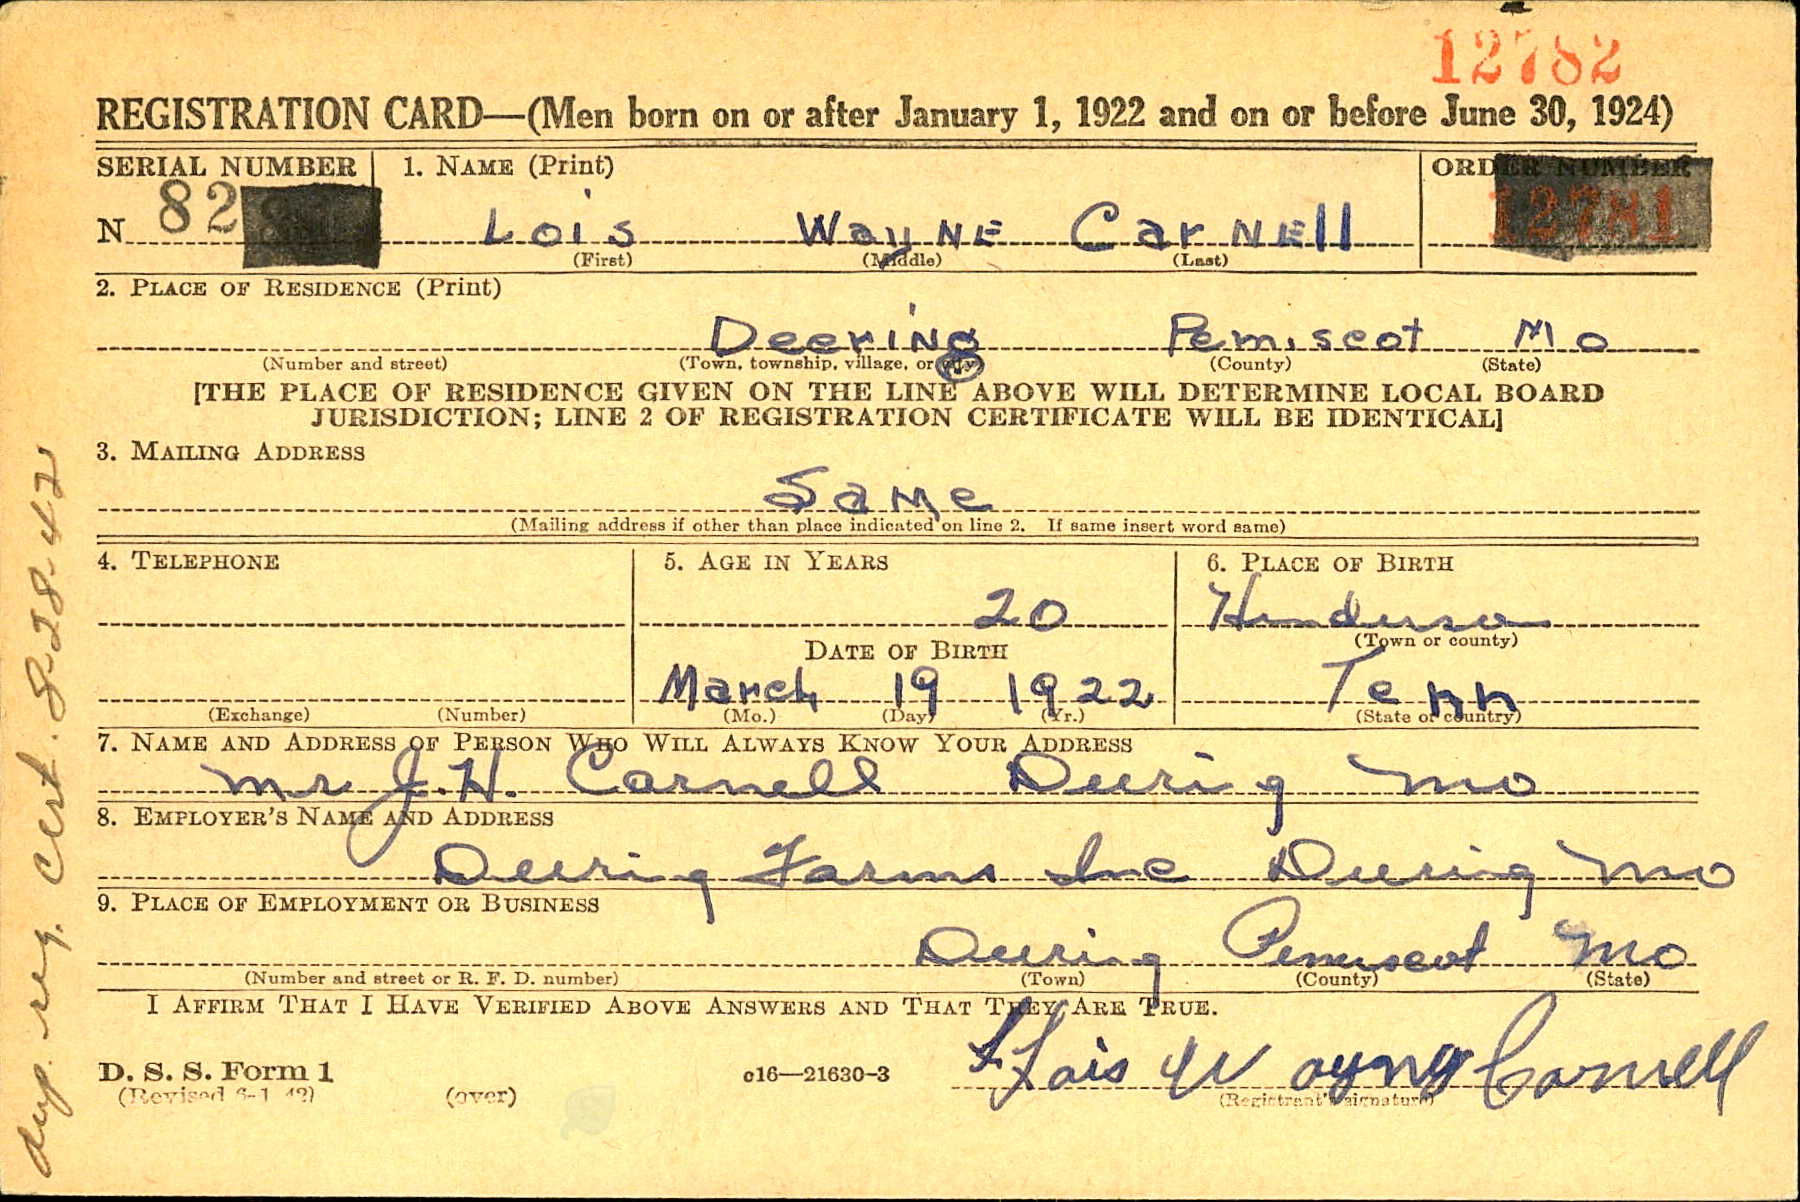 12782
REGISTRATION CARD—(Men born on or after January 1, 1922 and on or before June 30, 1924)
SERIAL NUMBER 1. NAME (Print) ORDER NUMBER
N 82 Lois Wayne Carnell 12781
(First) (Middle) (Last)
2. PLACE OF RESIDENCE (Print)
Deering Pemiscot Mo
(Number and street) (Town, township, village, or city) (County) (State)
[THE PLACE OF RESIDENCE GIVEN ON THE LINE ABOVE WILL DETERMINE LOCAL BOARD
JURISDICTION; LINE 2 OF REGISTRATION CERTIFICATE WILL BE IDENTICAL]
3. MAILING ADDRESS
Same
(Mailing address if other than place indicated on line 2. If same insert word same)
4. TELEPHONE 5. AGE IN YEARS 6. PLACE OF BIRTH
20 Henderson
(Town or county)
DATE OF BIRTH
March 19 1922 Tenn
(Exchange) (Number) (Mo.) (Day) (Yr.) (State or country)
7. NAME AND ADDRESS OF PERSON WHO WILL ALWAYS KNOW YOUR ADDRESS
Mr J. H. Carnell Deering Mo
8. EMPLOYER'S NAME AND ADDRESS
Deering Farms Inc Deering Mo
9. PLACE OF EMPLOYMENT OR BUSINESS
Deering Pemiscot Mo
(Number and street or R. F. D. number) (Town) (County) (State)
I AFFIRM THAT I HAVE VERIFIED ABOVE ANSWERS AND THAT THEY ARE TRUE.
D. S. S. Form 1 c16—21630-3 Lois Wayne Carnell
(Revised 6-1-42) (over) (Registrant's signature)
dup. reg. Cert. 8-28-42